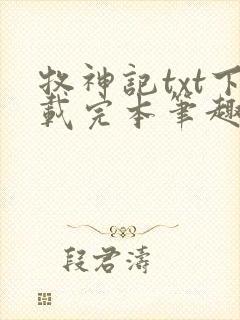 牧神記txt下
載完本筆趣
段君濤